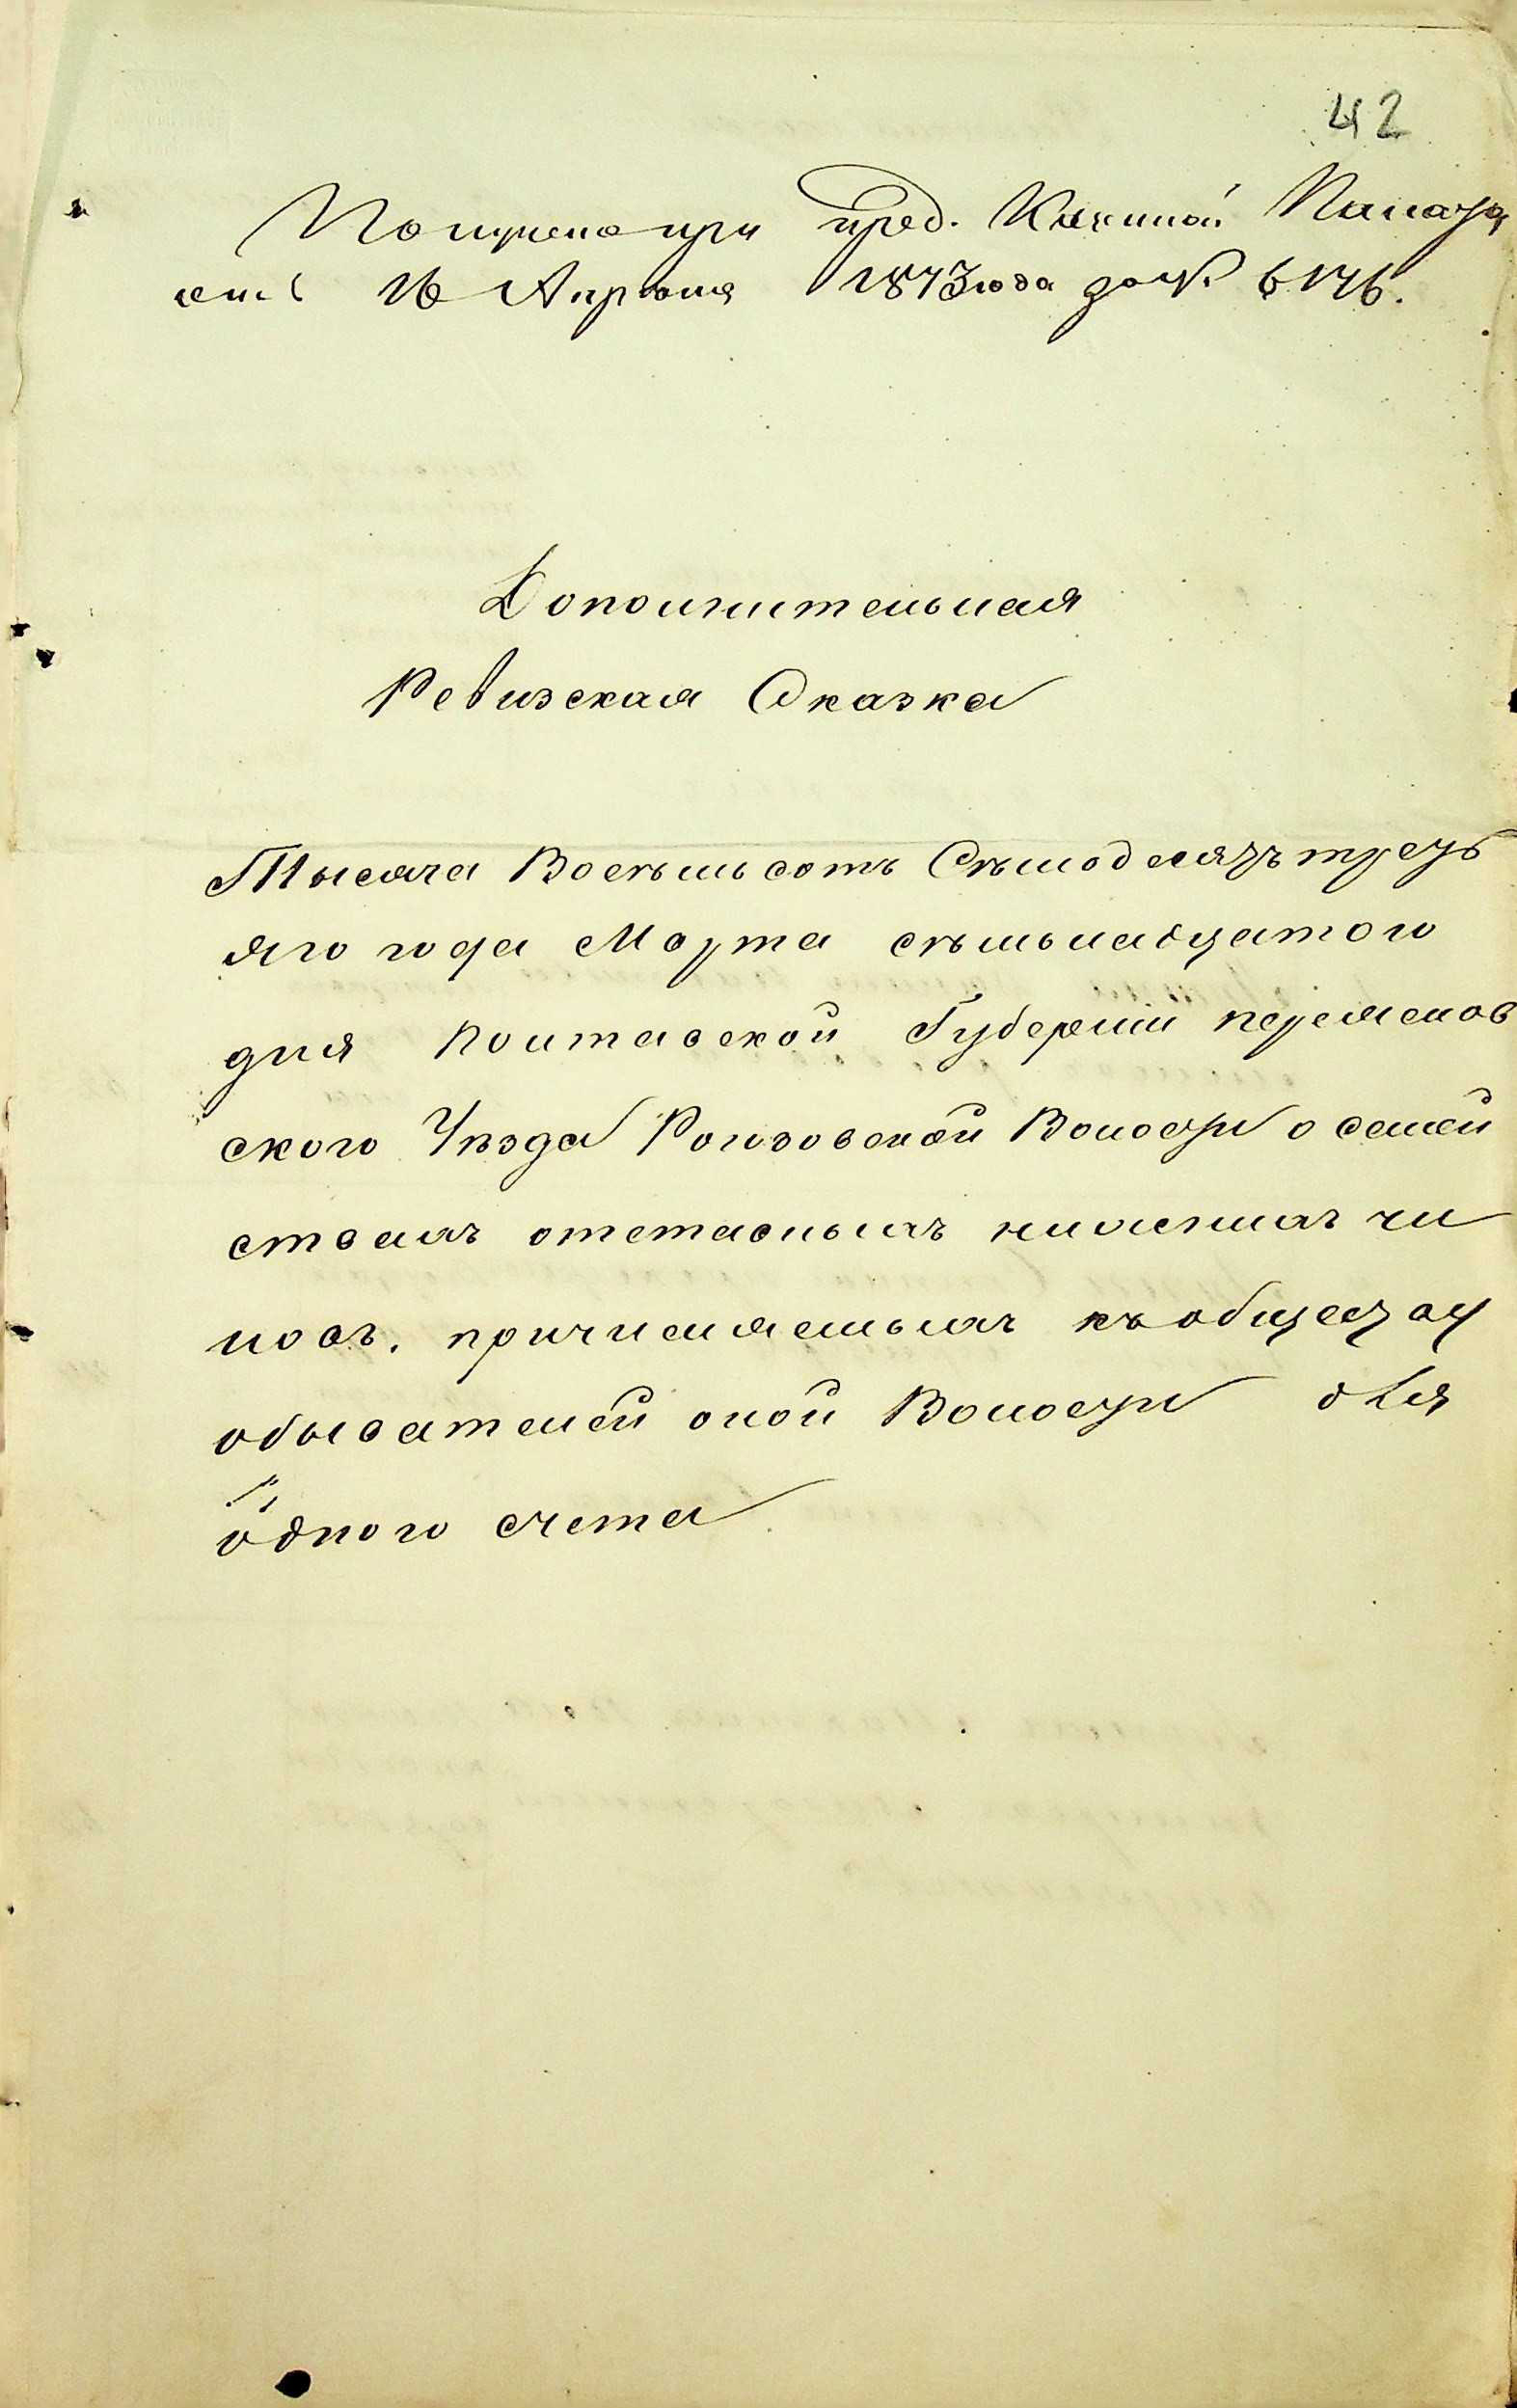 42
Получено при пред. Казенной Палаты
отъ 16 Апрѣля 1873 года за № 6146.
Дополнительная
Ревизская Сказка
Тысяча Восемьсотъ Сѣмодесятъ треть
яго года Марта сѣмьнадцатого
дня Полтавской Губерніи переяслов
ского Уѣзда Рогозовской Волости о семей
ствахъ отставныхъ нижнихъ чи
новъ, причисляемыхъ къ обществу
обывателей оной Волости для
одного счета